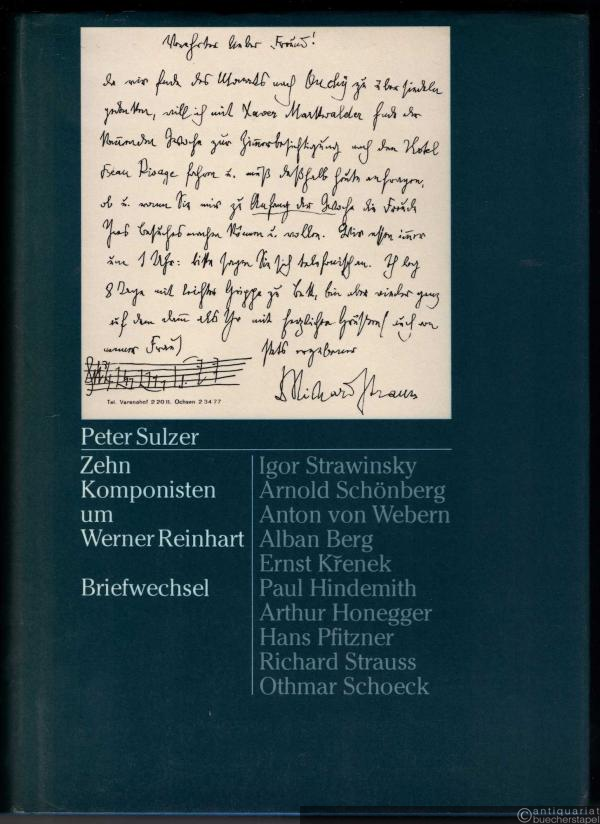 Verehrter lieber Freund!
da wir Ende des Monats nach Ouchy zu übersiedeln
gedenken, will ich mit Xaver Markwalder Ende der
kommenden Woche zur Zimmerbesichtigung nach dem Hotel
Beau Rivage fahren u. muß deßhalb heute anfragen,
ob u. wann Sie mir zu Anfang der Woche die Freude
Ihres Besuches machen können u. wollen. Wir essen immer
um 1 Uhr: bitte sagen Sie sich telefonisch an. Ich lag
8 Tage mit leichter Grippe zu Bett, bin aber wieder ganz
auf dem Damm als Ihr mit herzlichen Grüßen (auch von
meiner Frau)
stets ergebener
Dr Richard Strauss
Tel. Verenahof 2 20 11. Ochsen 2 34 77
Peter Sulzer
Zehn
Komponisten
um
Werner Reinhart
Briefwechsel
Igor Strawinsky
Arnold Schönberg
Anton von Webern
Alban Berg
Ernst Křenek
Paul Hindemith
Arthur Honegger
Hans Pfitzner
Richard Strauss
Othmar Schoeck
antiquariat
buecherstapel